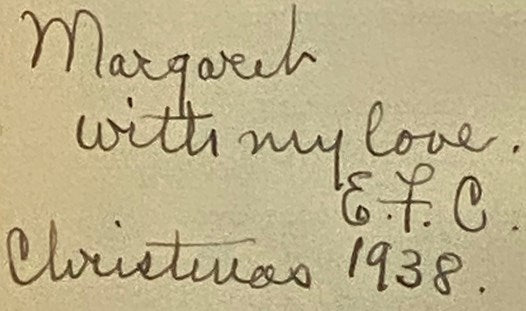 Margaret
with my love.
E.F.C.
Christmas 1938.